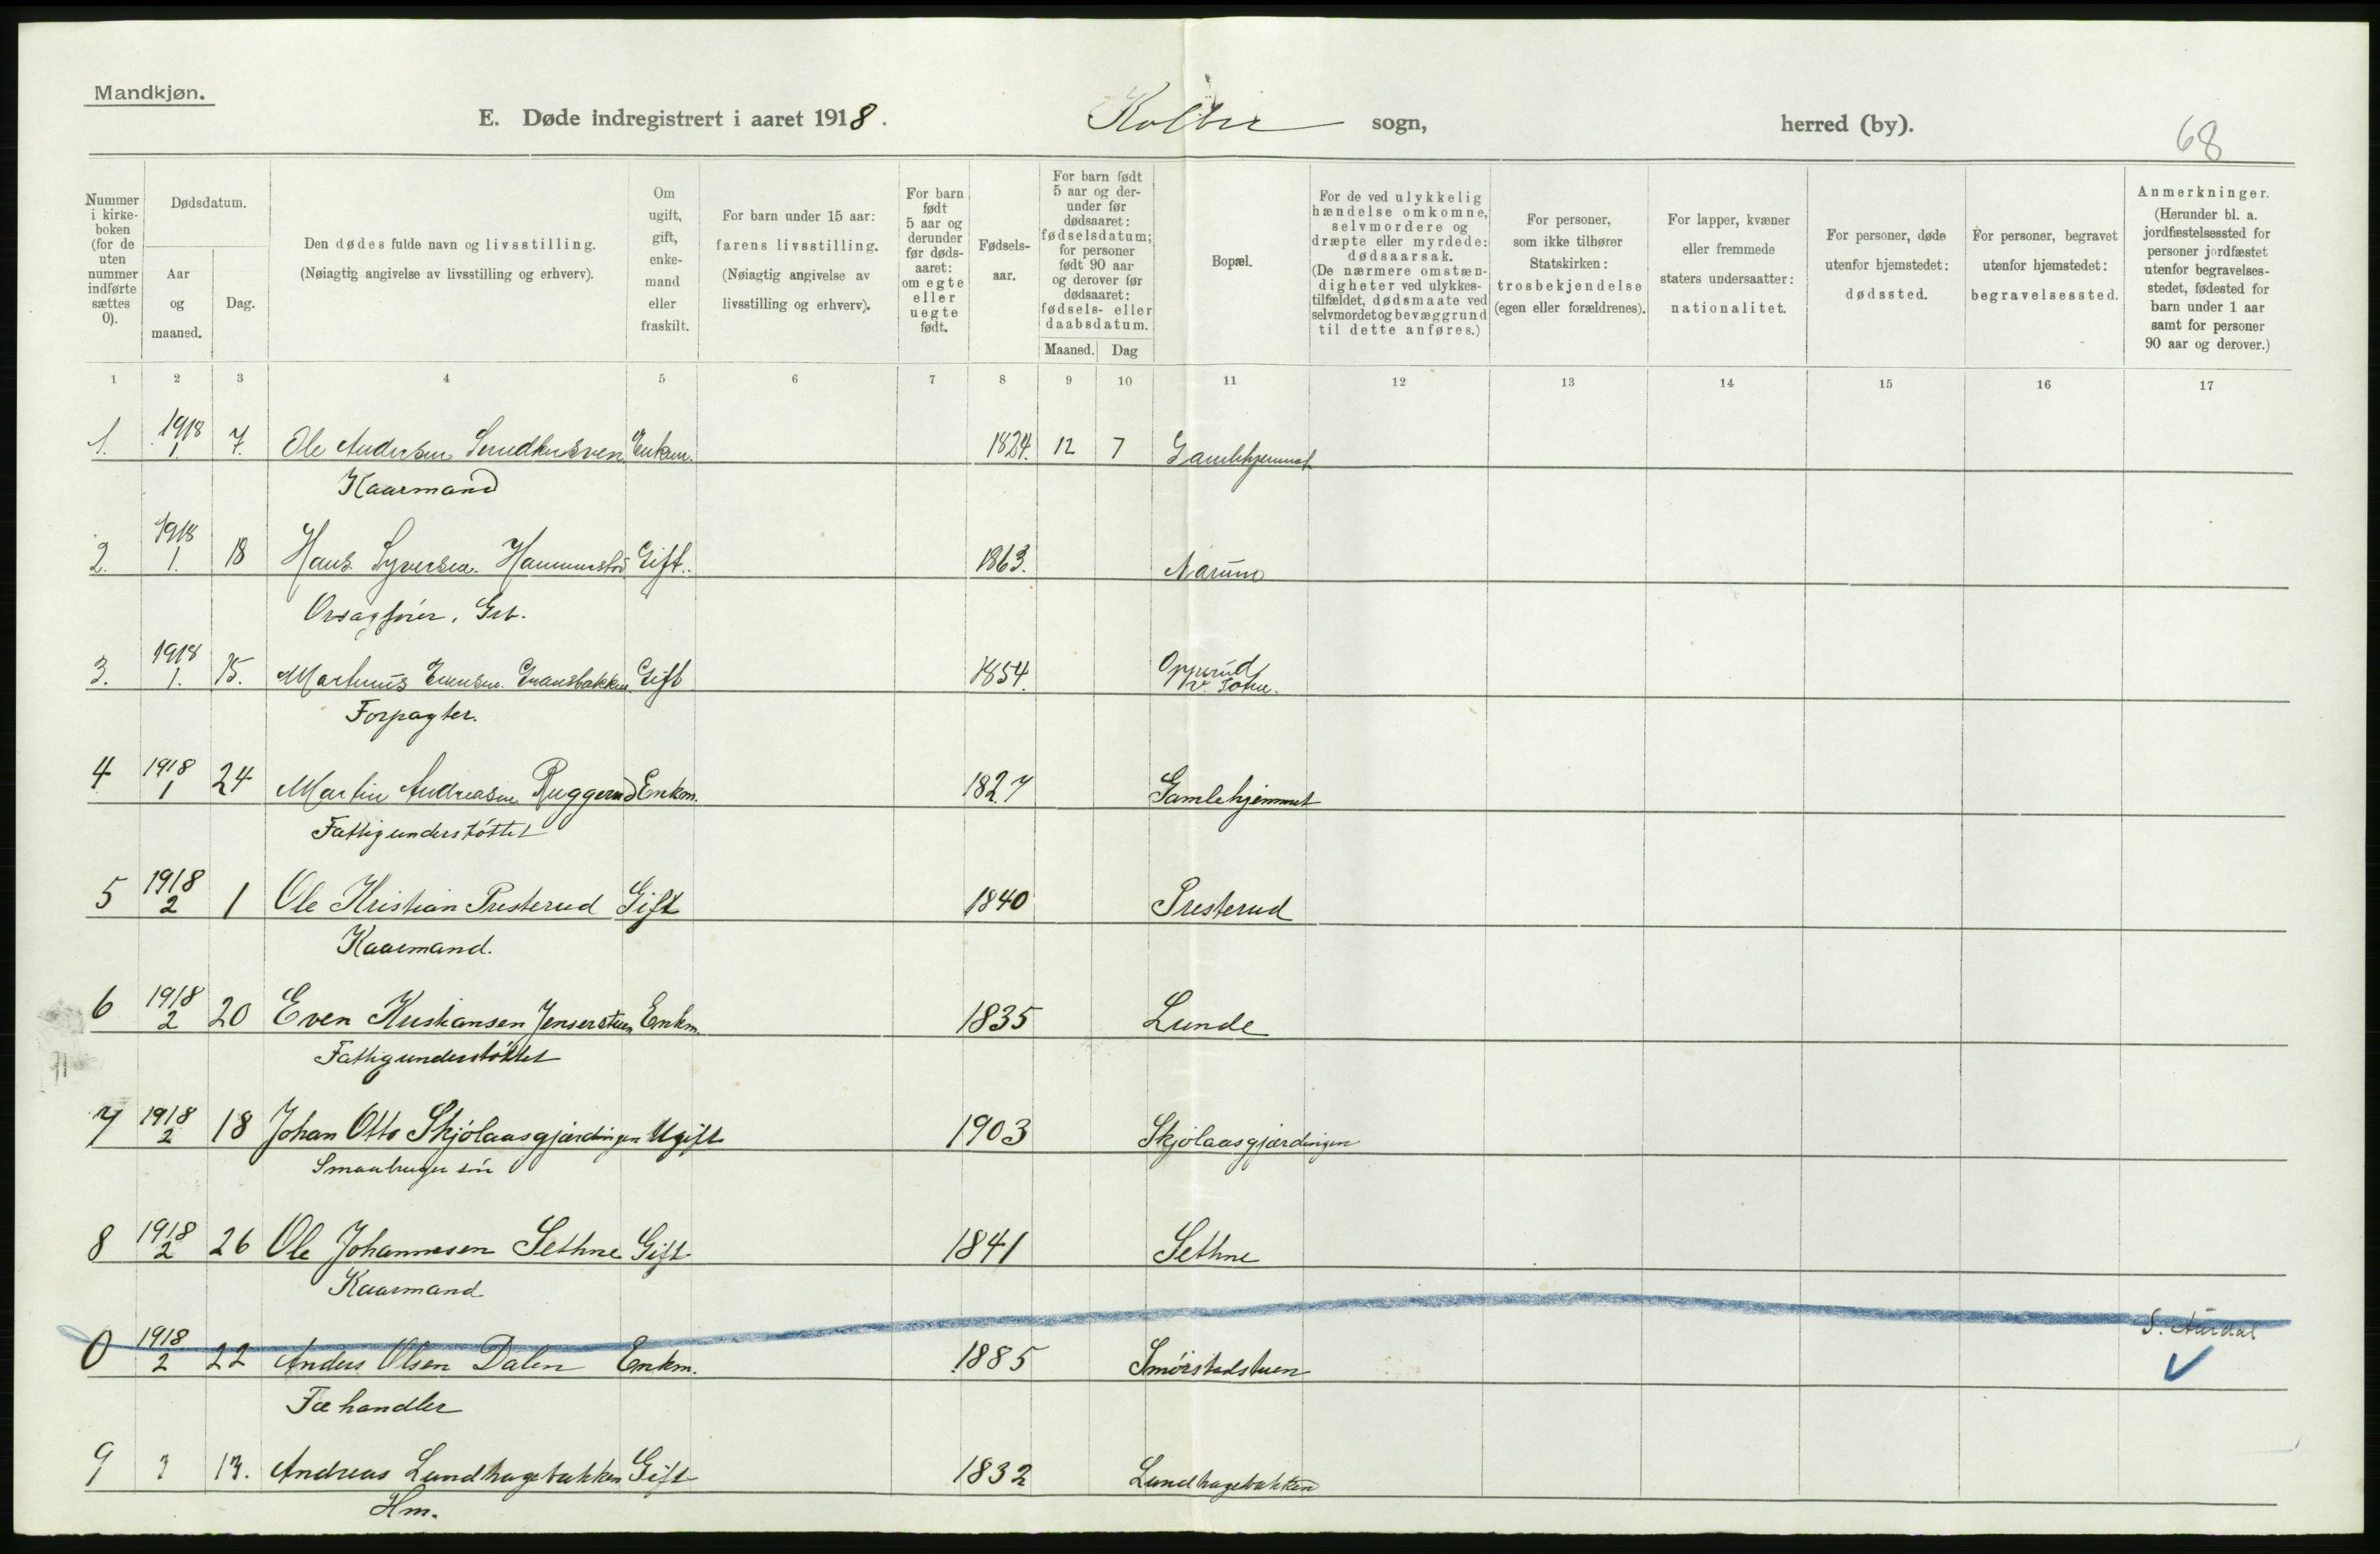 Mandkjøn.
E. Døde indregistrert i aaret 1918. Kolbu sogn, herred (by).
68
Nummer i kirke- boken (for de uten nummer indførte sættes 0).
Dødsdatum.
Aar og maaned.
Dag.
Den dødes fulde navn og livsstilling.
(Nøiagtig angivelse av livsstilling og erhverv).
Om ugift, gift, enke- mand eller fraskilt.
For barn under 15 aar: farens livsstilling.
(Nøiagtig angivelse av livsstilling og erhverv).
For barn født 5 aar og derunder før døds- aaret: om egte eller uegte født.
Fødsels- aar.
For barn født 5 aar og der- under før dødsaaret: fødselsdatum; for personer født 90 aar og derover før dødsaaret: fødsels- eller daabsdatum.
Maaned. Dag
Bopæl.
For de ved ulykkelig hændelse omkomne, selvmordere og dræpte eller myrdede: dødsaarsak.
(De nærmere omstæn- digheter ved ulykkes- tilfældet, dødsmaate ved selvmordet og bevæggrund til dette anføres.)
For personer, som ikke tilhører Statskirken: trosbekjendelse (egen eller forældrenes).
For lapper, kvæner eller fremmede staters undersaatter: nationalitet.
For personer, døde utenfor hjemstedet: dødssted.
For personer, begravet utenfor hjemstedet: begravelsessted.
Anmerkninger.
(Herunder bl. a. jordfæstelsessted for personer jordfæstet utenfor begravelses- stedet, fødested for barn under 1 aar samt for personer 90 aar og derover.)
1 2 3 4 5 6 7 8 9 10 11 12 13 14 15 16 17
1. 1918 1. 7. Ole Andersen Enkem. 1824. 12 7 Gamlehjemmet
Kaarmand
2. 1918 1. 18 Hans Syversen Hammerstad Gift. 1863.
3. 1918 1. 15. Martinus Evensen Gransbakken Gift 1854. Opperud v. Toten.
Forpagter.
4 1918 1 24 Martin Andreasen Ruggerud Enkm. 1827 Gamlehjemmet
Fattigunderstøttet
5 1918 2 1 Ole Kristian Presterud Gift 1840 Presterud
Kaarmand.
6 1918 2 20 Even Kristiansen Jenserstuen Enkm. 1835 Lunde
Fattigunderstøttet
7 1918 2 18 Johan Otto Skjølaasgjærdingen Ugift 1903 Skjølaasgjærdingen
Smaabruger søn
8 1918 2 26 Ole Johannesen Sethne Gift 1841 Sethne
Kaarmand
0 1918 2 22 Anders Olsen Dalen Enkm. 1885 Smørstadstuen S. Aurdal
Fæhandler
9 3 13. Andreas Lundhagebakken Gift 1832 Lundhagebakken
Hm.